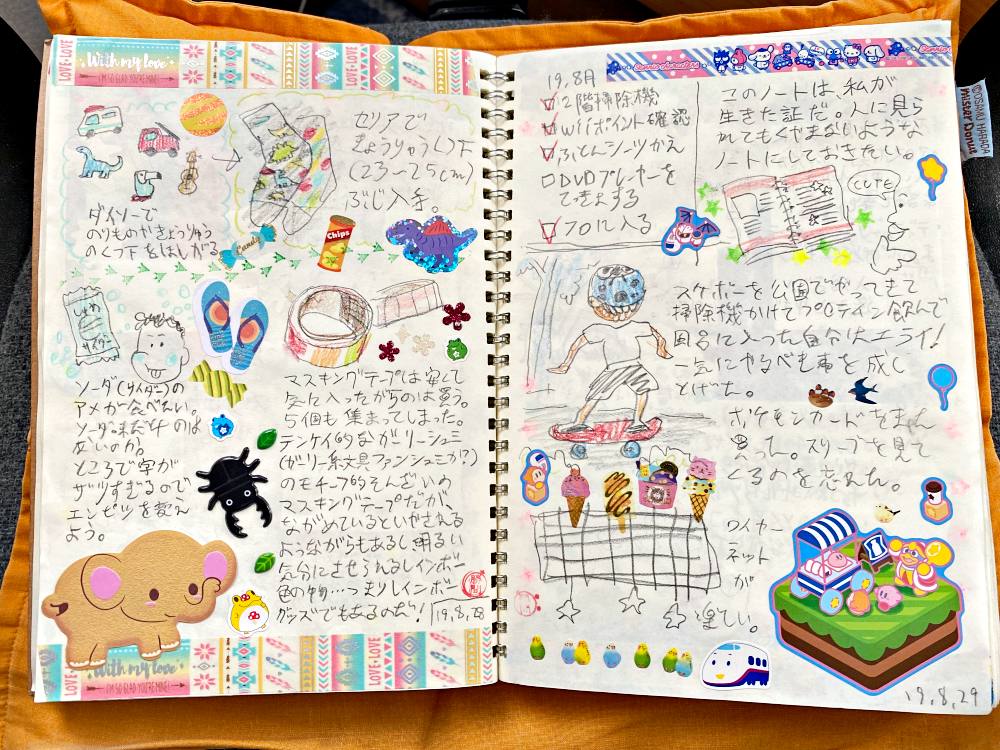 With my love
I'M SO GLAD YOU'RE MINE!
LOVE・LOVE
LOVE・LOVE
セリアで
きょうりゅうくつ下
(23～25cm)
ぶじ入手。
ダイソーで
のりものやきょうりゅう
のくつ下をほしがる
Candy
Chips
しゅわ
サイダー
ソーダ(サイダー)の
アメが食べたい。
ところで字が
ザツすぎるので
エンピツを変え
よう。
マスキングテープは安くて
気に入ったがらのは買う。
5個も集まってしまった。
テンケイ的なガーリーシュミ
(ガーリー系文具ファンシュミか?)
のモチーフ的そんざいの
マスキングテープだが、
ながめているといやされる
ようながらもあるし明るい
気分にさせられるレインボー
色の物…つまりレインボー
グッズでもあるのだ!
19,8,28
With my love
I'M SO GLAD YOU'RE MINE!
LOVE・LOVE
LOVE・LOVE
19,8月
2階掃除機
Wiiポイント確認
ふとんシーツかえ
DVDプレーヤーを
フロに入る
このノートは、私が
生きた証だ。人に見ら
れてもくやまないような
ノートにしておきたい。
CUTE
スケボーを公園でやってきて
掃除機かけてプロテイン飲んで
風呂に入った自分はエライ!
一気にやるべき事を成し
とげた。
ポケモンカードをまた
買った。スリーブを見て
くるのを忘れん。
ワイヤー
ネット
が
楽しい。
19,8,29
©OSAMU HARADA
mister Donut